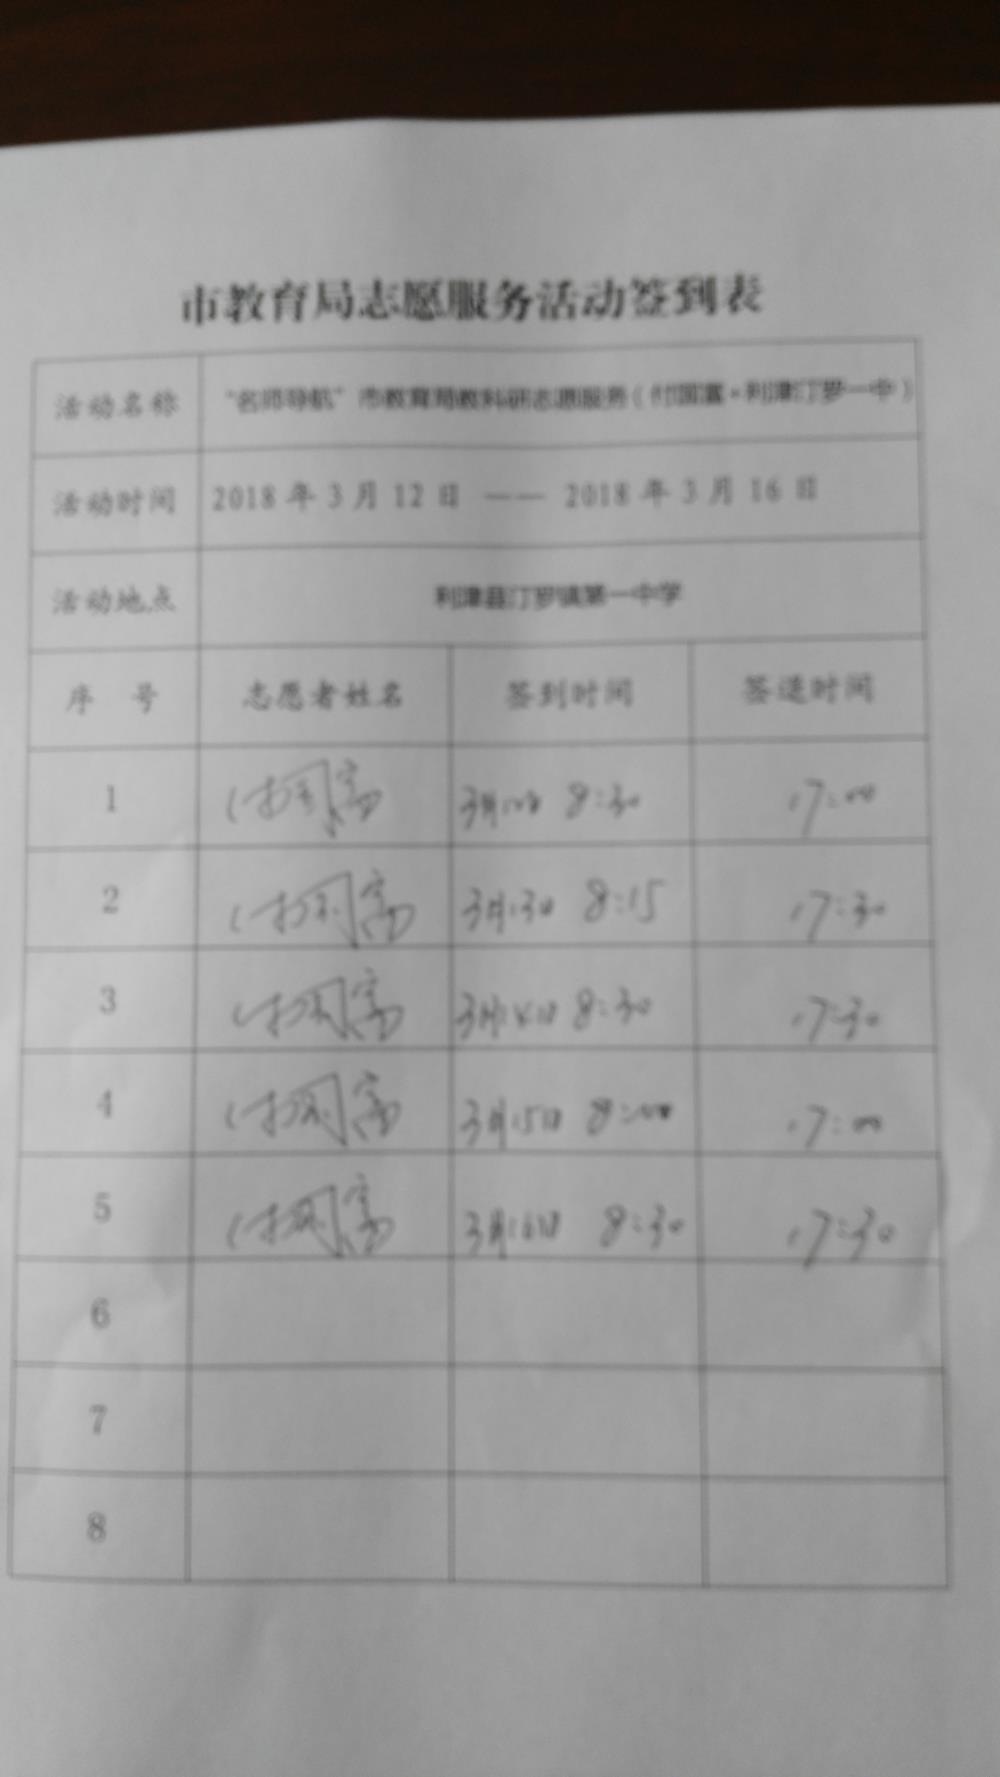 市教育局志愿服务活动签到表
活动名称 “名师导航”市教育局教科研志愿服务（付国富·利津汀罗一中）
活动时间 2018 年 3 月 12 日 —— 2018 年 3 月 16 日
活动地点 利津县汀罗镇第一中学
序 号 志愿者姓名 签到时间 签退时间
1 付国富 3月12日 8:30 17:00
2 付国富 3月13日 8:15 17:30
3 付国富 3月14日 8:30 17:30
4 付国富 3月15日 8:00 17:00
5 付国富 3月16日 8:30 17:30
6
7
8